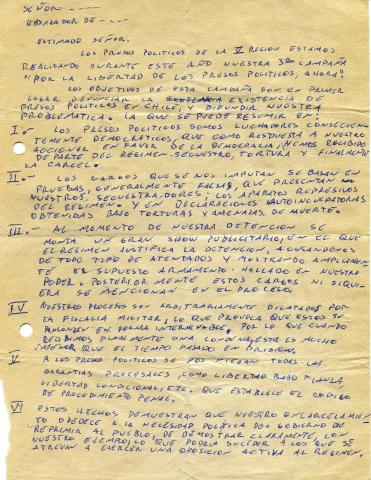 SEÑOR - - - -
EMBAJADOR DE - - - -
ESTIMADO SEÑOR.
LOS PRESOS POLITICOS DE LA V REGION ESTAMOS
REALIZANDO DURANTE ESTE AÑO NUESTRA 3ª CAMPAÑA
"POR LA LIBERTAD DE LOS PRESOS POLITICOS, AHORA".
LOS OBJETIVOS DE ESTA CAMPAÑA SON EN PRIMER
LUGAR DENUNCIAR LA EXISTENCIA DE
PRESOS POLITICOS EN CHILE, Y DIFUNDIR NUESTRA
PROBLEMATICA. LA QUE SE PUEDE RESUMIR EN:
I.- LOS PRESOS POLITICOS SOMOS LUCHADORES CONSECUEN
TEMENTE DEMOCRÁTICOS, QUE COMO RESPUESTA A NUESTRO
ACCIONAR EN FAVOR DE LA DEMOCRACIA, HEMOS RECIBIDO
DE PARTE DEL REGIMEN: SECUESTRO, TORTURA Y FINALMENTE
LA CARCEL.
II.- LOS CARGOS QUE SE NOS IMPUTAN SE BASAN EN
PRUEBAS, GENERALMENTE FALSAS, QUE PRESENTAN
NUESTROS SECUESTRADORES: LOS APARATOS REPRESIVOS
DEL REGIMEN Y EN DECLARACIONES AUTOINCULPATORIAS
OBTENIDAS BAJO TORTURAS Y AMENAZAS DE MUERTE.
III.- AL MOMENTO DE NUESTRA DETENCION SE
MONTA UN GRAN SHOW PUBLICITARIO, EN EL QUE
EL REGIMEN JUSTIFICA LA DETENCION, ACUSANDONOS
DE TODO TIPO DE ATENTADOS Y MOSTRANDO AMPLIAMEN
TE EL SUPUESTO ARMAMENTO HALLADO EN NUESTRO
PODER. POSTERIORMENTE ESTOS CARGOS NI SIQUI
ERA SE MENCIONAN EN EL PROCESO.
IV NUESTROS PROCESOS SON ARBITRARIAMENTE DILATADOS POR
LA FISCALIA MILITAR, LO QUE PROVOCA QUE ESTOS SE
PROLONGEN EN FORMA INTERMINABLE, POR LO QUE CUANDO
RECIBIMOS FINALMENTE UNA CONDENA, ESTA ES MUCHO
MENOR QUE EL TIEMPO PASADO EN PRISION.
V A LOS PRESOS POLITICOS SE NOS NIEGAN TODAS LAS
GARANTIAS PROCESALES, COMO LIBERTAD BAJO FIANZA,
LIBERTAD CONDICIONAL, ETC. QUE ESTABLECE EL CODIGO
DE PROCEDIMIENTO PENAL.
VI ESTOS HECHOS DEMUESTRAN QUE NUESTRO ENCARCELAMIEN
TO OBEDECE A LA NECESIDAD POLÍTICA DEL GOBIERNO DE
REPRIMIR AL PUEBLO, DE DEMOSTRAR CLARAMENTE, CON
NUESTRO EJEMPLO, LO QUE PODRIA SUCEDER A LOS QUE SE
ATREVAN A EJERCER UNA OPOSICION ACTIVA AL REGIMEN.